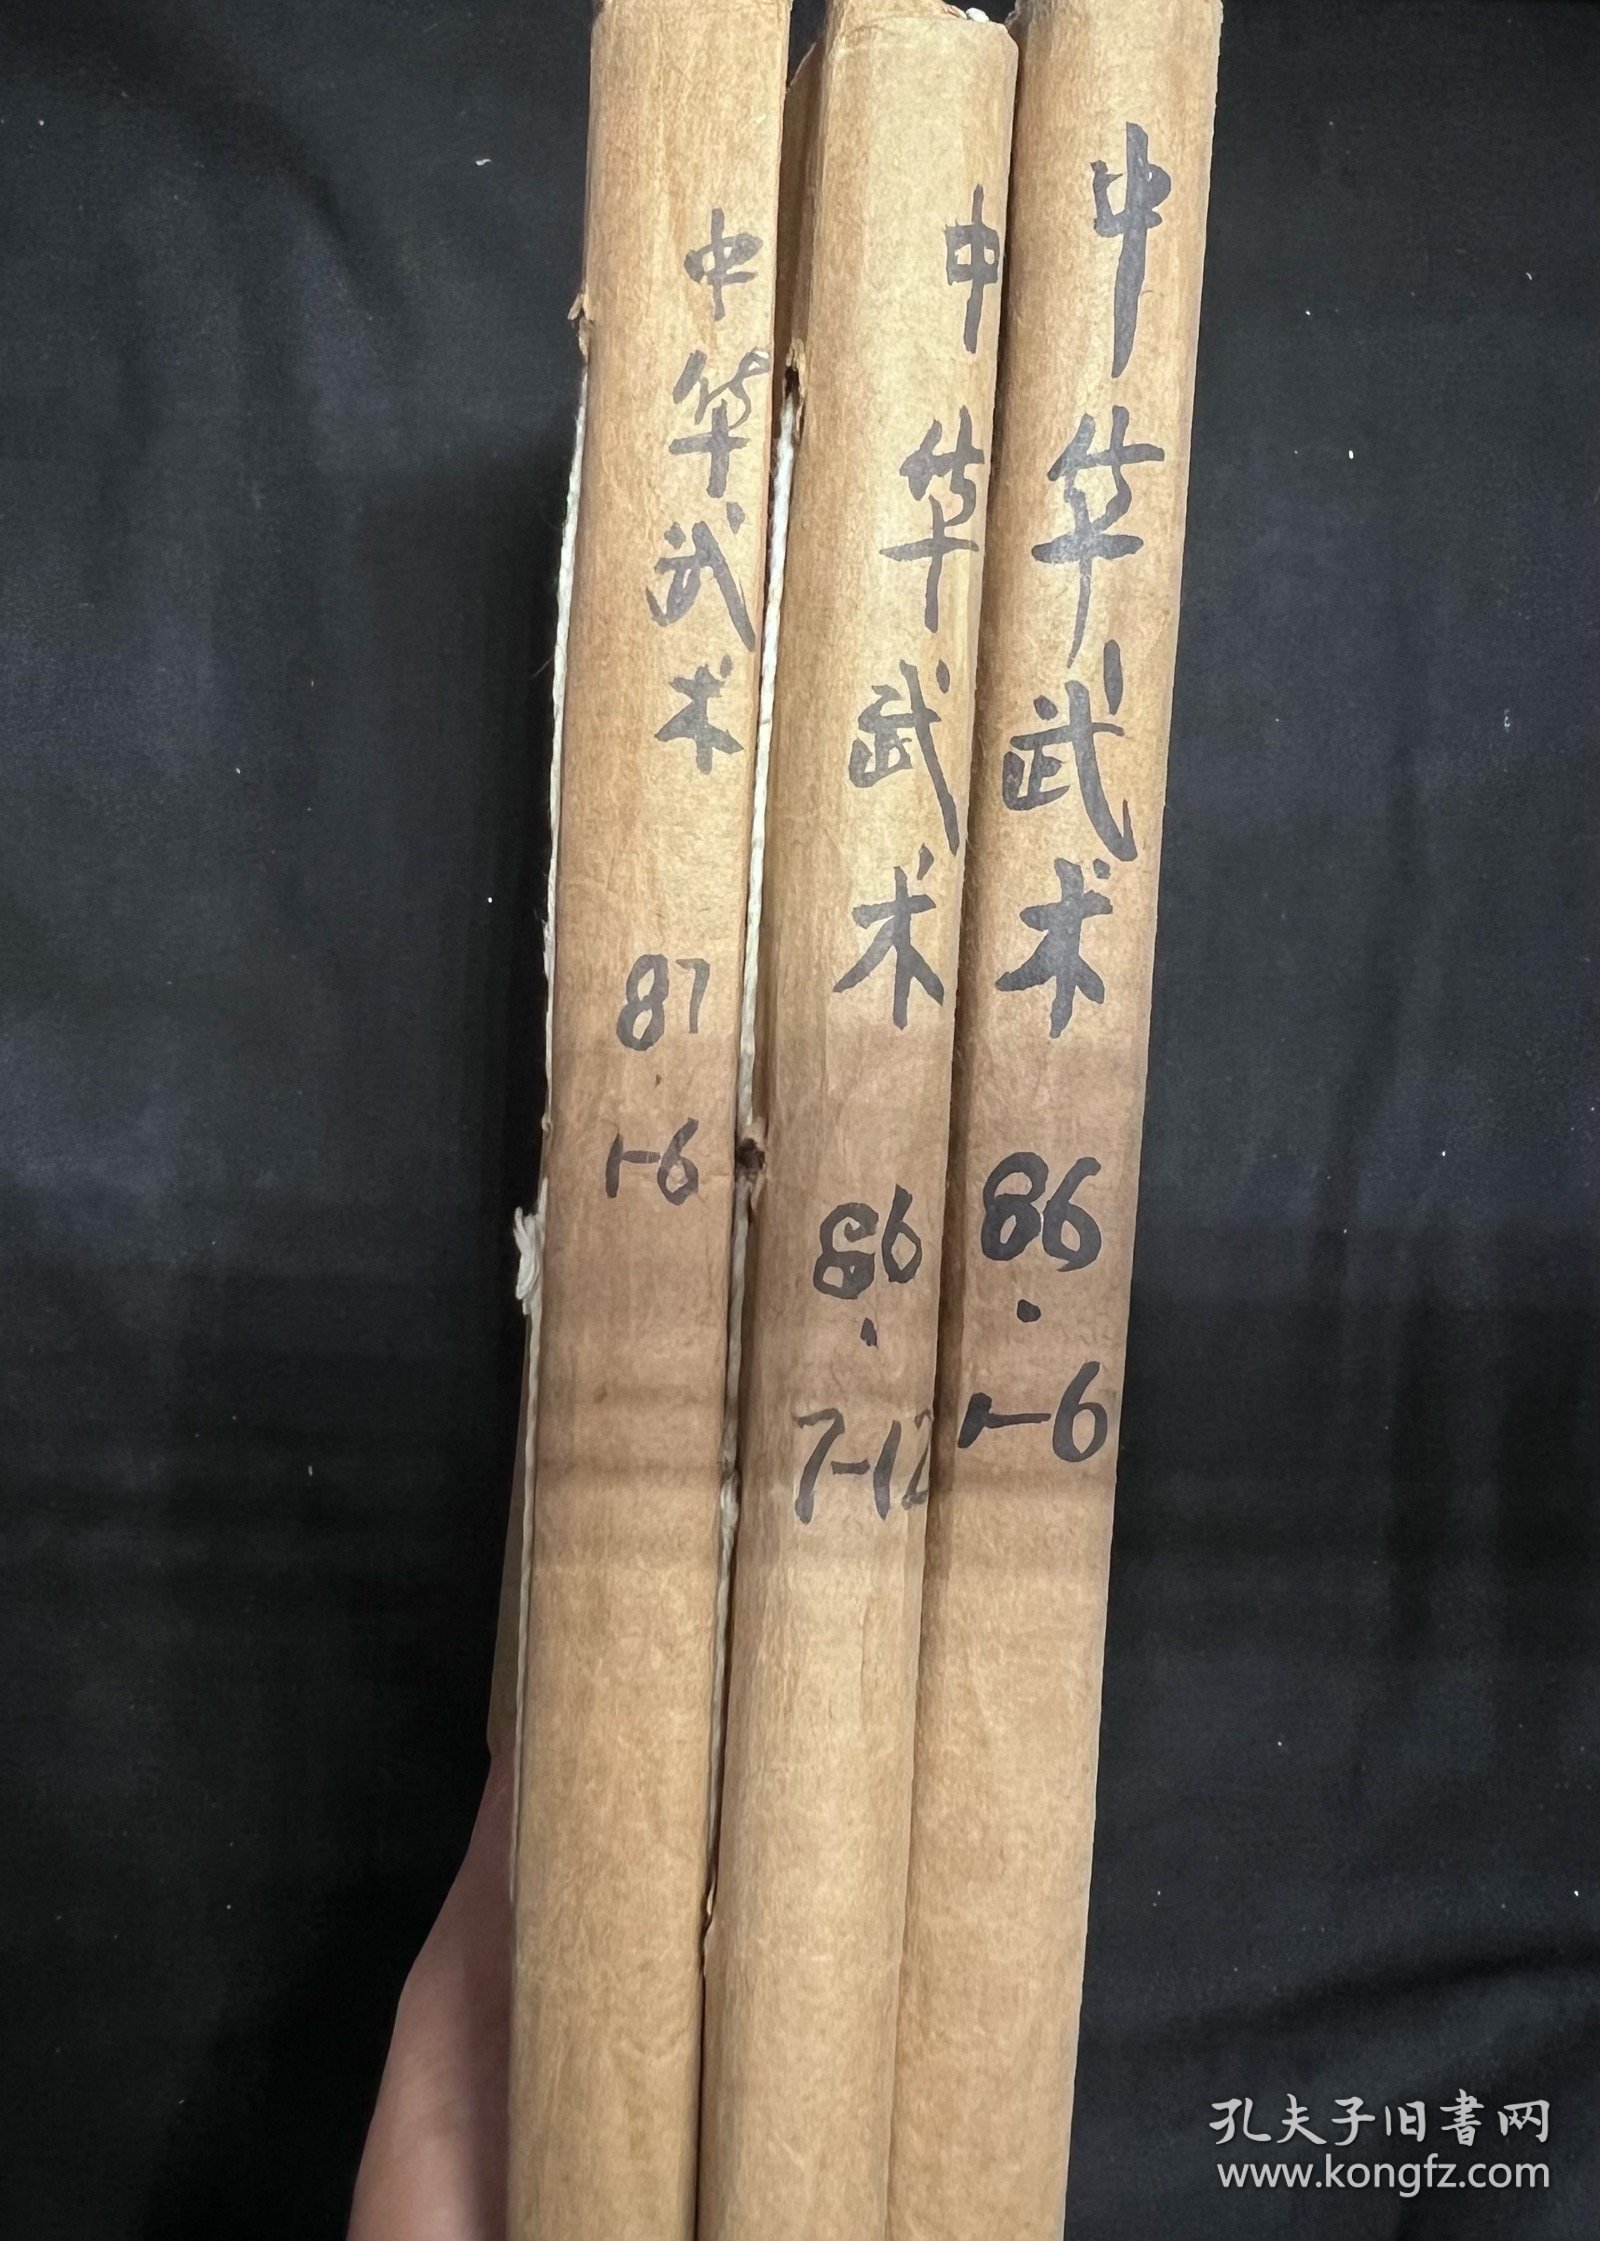 中华武术
87.
1-6
中华武术
86.
7-12
中华武术
86.
1-6
孔夫子旧书网
www.kongfz.com